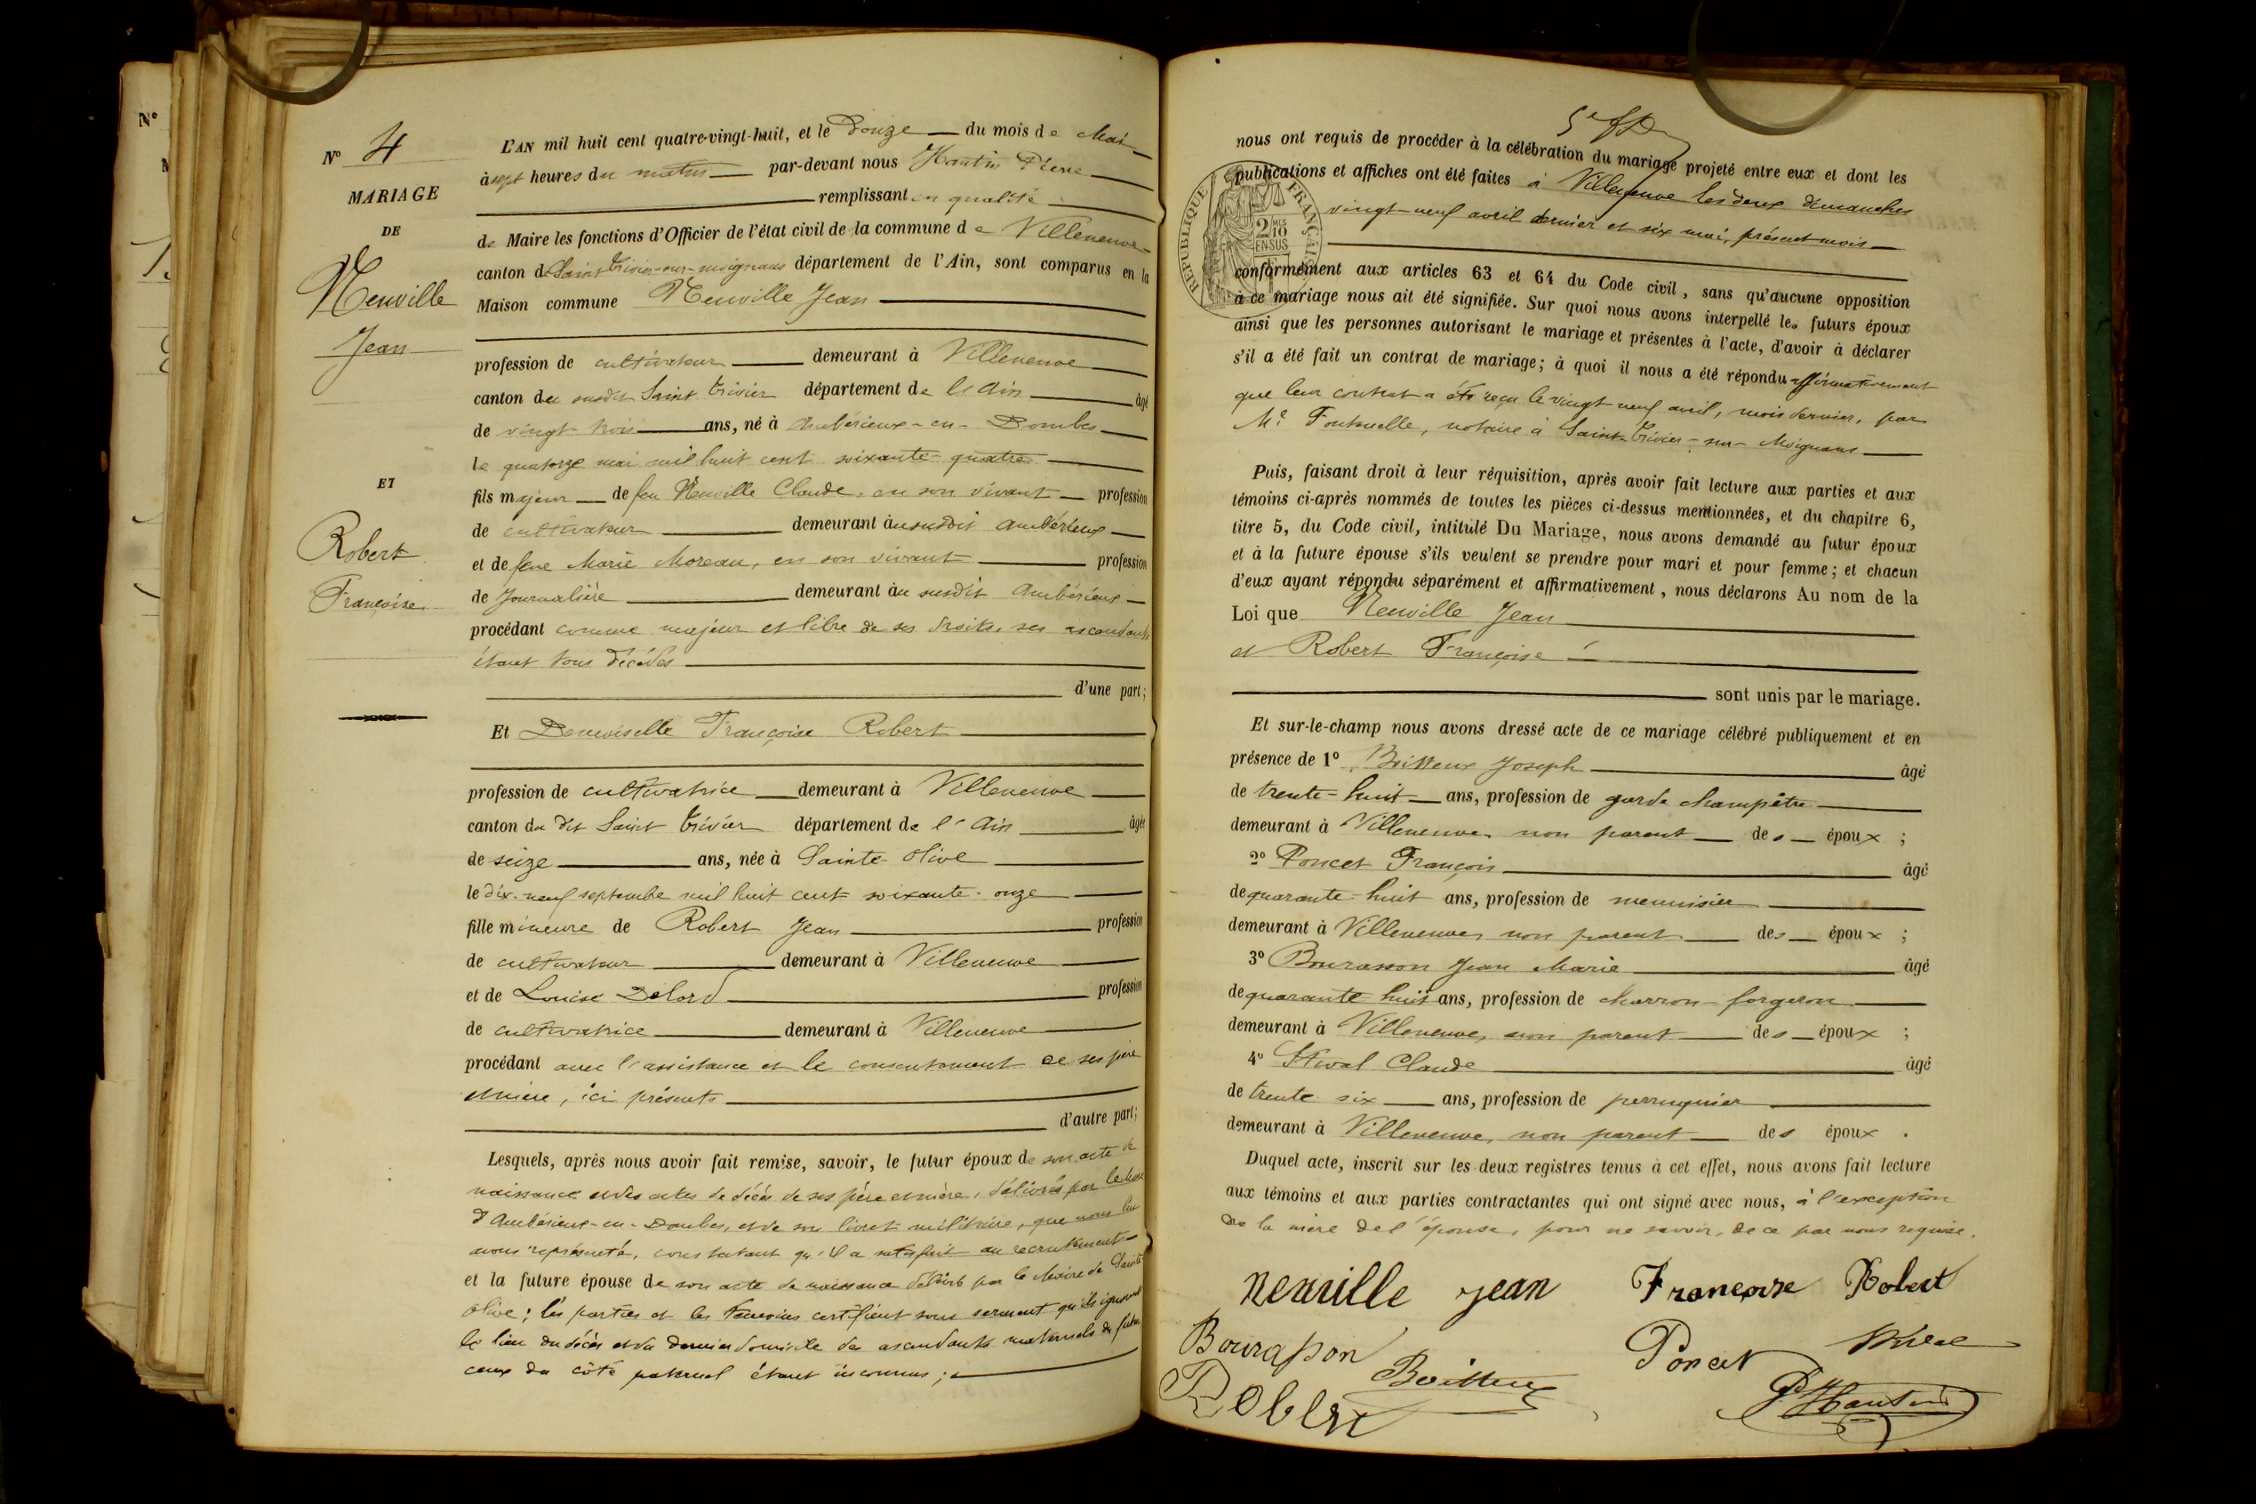 N° 4
MARIAGE
DE
Neuville
Jean
ET
Robert
Françoise
L'AN mil huit cent quatre-vingt-huit, et le Douze du mois de Mai
à sept heures du matin par-devant nous Pierre
remplissant en qualité
de Maire les fonctions d'Officier de l'état civil de la commune de Villeneuve
canton de Saint Trivier-sur-moignans département de l'Ain, sont comparus en la
Maison commune Neuville Jean
profession de cultivateur demeurant à Villeneuve
canton du susdit Saint Trivier département de l'Ain âgé
de vingt trois ans, né à Ambérieux-en-Dombes
le quatorze mai mil huit cent soixante-quatre
fils majeur de feu Neuville Claude, en son vivant profession
de cultivateur demeurant au susdit Ambérieux
et de feue Marie Moreau, en son vivant profession
de Journalière demeurant au susdit Ambérieux
procédant comme majeur et libre de ses droits, ses ascendants
étant tous décédés
d'une part;
Et Demoiselle Françoise Robert
profession de cultivatrice demeurant à Villeneuve
canton du dit Saint Trivier département de l'Ain âgée
de seize ans, née à Sainte Olive
le dix-neuf septembre mil huit cent soixante-onze
fille mineure de Robert Jean profession
de cultivateur demeurant à Villeneuve
et de Louise Delord profession
de cultivatrice demeurant à Villeneuve
procédant avec l'assistance et le consentement de ses père
et mère, ici présents
d'autre part;
Lesquels, après nous avoir fait remise, savoir, le futur époux de son acte de
naissance et des actes de décès de ses père et mère, délivrés par le
d'Ambérieux-en-Dombes, et de son livret militaire, que nous lui
avons représenté, constatant qu'il a satisfait au recrutement
et la future épouse de son acte de naissance délivré par le Maire de Sainte
Olive; les parties et les témoins certifient sous serment qu'ils ignorent
le lieu du décès et du dernier domicile des ascendants maternels du futur
ceux du côté paternel étant inconnus;
nous ont requis de procéder à la célébration du mariage projeté entre eux et dont les
publications et affiches ont été faites à Villeneuve les deux dimanches
vingt-neuf avril dernier et six mai, présent mois
RÉPUBLIQUE FRANÇAISE
2 MES 10 EN SUS
conformément aux articles 63 et 64 du Code civil, sans qu'aucune opposition
à ce mariage nous ait été signifiée. Sur quoi nous avons interpellé les futurs époux
ainsi que les personnes autorisant le mariage et présentes à l'acte, d'avoir à déclarer
s'il a été fait un contrat de mariage; à quoi il nous a été répondu affirmativement
que leur contrat a été reçu le vingt neuf avril, mois dernier, par
Me Fontenelle, notaire à Saint-Trivier-sur-Moignans
Puis, faisant droit à leur réquisition, après avoir fait lecture aux parties et aux
témoins ci-après nommés de toutes les pièces ci-dessus mentionnées, et du chapitre 6,
titre 5, du Code civil, intitulé Du Mariage, nous avons demandé au futur époux
et à la future épouse s'ils veulent se prendre pour mari et pour femme; et chacun
d'eux ayant répondu séparément et affirmativement, nous déclarons Au nom de la
Loi que Neuville Jean
et Robert Françoise
sont unis par le mariage.
Et sur-le-champ nous avons dressé acte de ce mariage célébré publiquement et en
présence de 1° Boitteux Joseph âgé
de trente-huit ans, profession de garde champêtre
demeurant à Villeneuve, non parent des époux;
2° Poncet François âgé
de quarante-huit ans, profession de menuisier
demeurant à Villeneuve, non parent des époux;
3° Bourasson Jean Marie âgé
de quarante huit ans, profession de charron-forgeron
demeurant à Villeneuve, non parent des époux;
4° Claude âgé
de trente six ans, profession de perruquier
demeurant à Villeneuve, non parent des époux.
Duquel acte, inscrit sur les deux registres tenus à cet effet, nous avons fait lecture
aux témoins et aux parties contractantes qui ont signé avec nous, à l'exception
de la mère de l'épouse, pour ne savoir, de ce par nous requise.
Neuville Jean Françoise Robert
Bourasson Boitteux Poncet
Robert